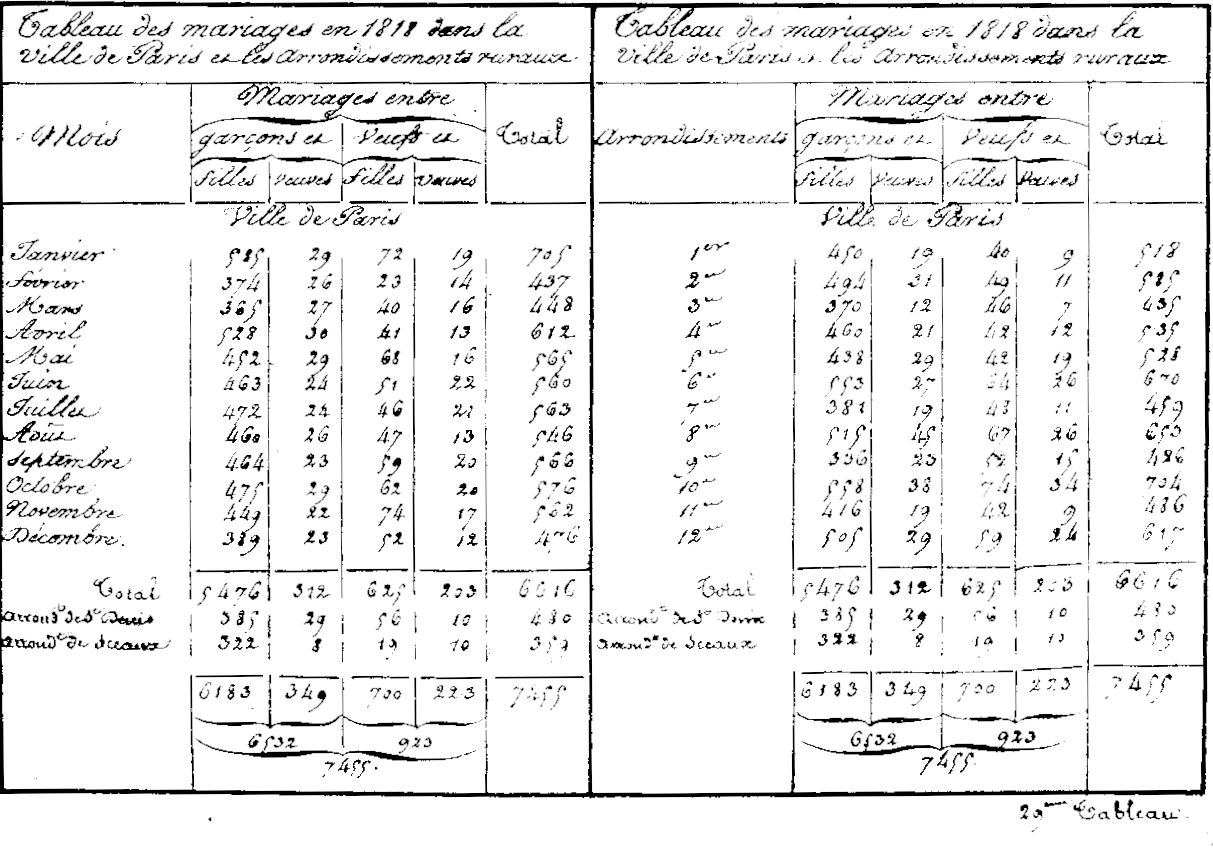 Tableau des mariages en 1818 dans la
Ville de Paris et les Arrondissements ruraux
Mois
Mariages entre
garçons et Veufs et
filles veuves filles veuves
Total
Ville de Paris
Janvier 585 29 72 19 705
Février 374 26 23 14 437
Mars 365 27 40 16 448
Avril 528 30 41 13 612
Mai 452 29 68 16 565
Juin 463 24 51 22 560
Juillet 472 24 46 21 563
Août 460 26 47 13 546
Septembre 464 23 59 20 566
Octobre 475 29 62 20 576
Novembre 449 22 74 17 562
Décembre. 389 23 52 12 476
Total 5476 312 625 203 6616
arrond.t de S.t Denis 385 29 56 10 480
arrond.t de Sceaux 322 8 19 10 359
6183 349 700 223 7455
6532 923
7455.
Tableau des mariages en 1818 dans la
Ville de Paris et les Arrondissements ruraux
Arrondissements
Mariages entre
garçons et Veufs et
filles Veuves filles Veuves
Total
Ville de Paris
1er 450 19 40 9 518
2me 494 31 49 11 585
3me 370 12 46 7 435
4me 460 21 42 12 535
5me 438 29 42 19 528
6me 553 27 64 26 670
7me 381 19 48 11 459
8me 515 45 67 26 653
9me 336 23 52 15 426
10me 558 38 74 34 704
11me 416 19 42 9 486
12me 505 29 59 24 617
Total 5476 312 625 203 6616
arrond.t de S.t Denis 385 29 56 10 480
arrond.t de Sceaux 322 8 19 10 359
6183 349 700 223 7455
6532 923
7455.
29eme Tableau.